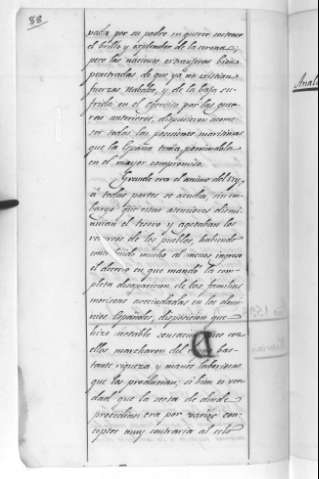 88
Anale
nada por su padre en querer sostener
el brillo y esplendor de la corona,
pero las naciones estrangeras bien
penetradas de que ya no existian
fuerzas ni tabes, y de la baja su-
frida en el ejército por las guer-
ras anteriores, dispusieron acome-
ter todas las posesiones maritimas
que la España tenia, poniendola
en el mayor compromiso.
Grande era el animo del Rey,
á todas partes se acudia, sin em-
bargo que estas atenciones dismi-
nuian el tesoro y agotaban los
recursos de los pueblos, habiendo
contribuido mucho al menos ingreso
el decreto en que mandó la com-
pleta desaparicion de las familias
moriscas avecindadas en los domi-
nios Españoles, disposicion que
hizo notable sensacion, pues con
ellos marcharon del bas-
tante riqueza y manos laboriosas
que las producian; si bien es ver-
dad que la secta de donde
procedian era por varios con-
ceptos muy contraria al celo
D